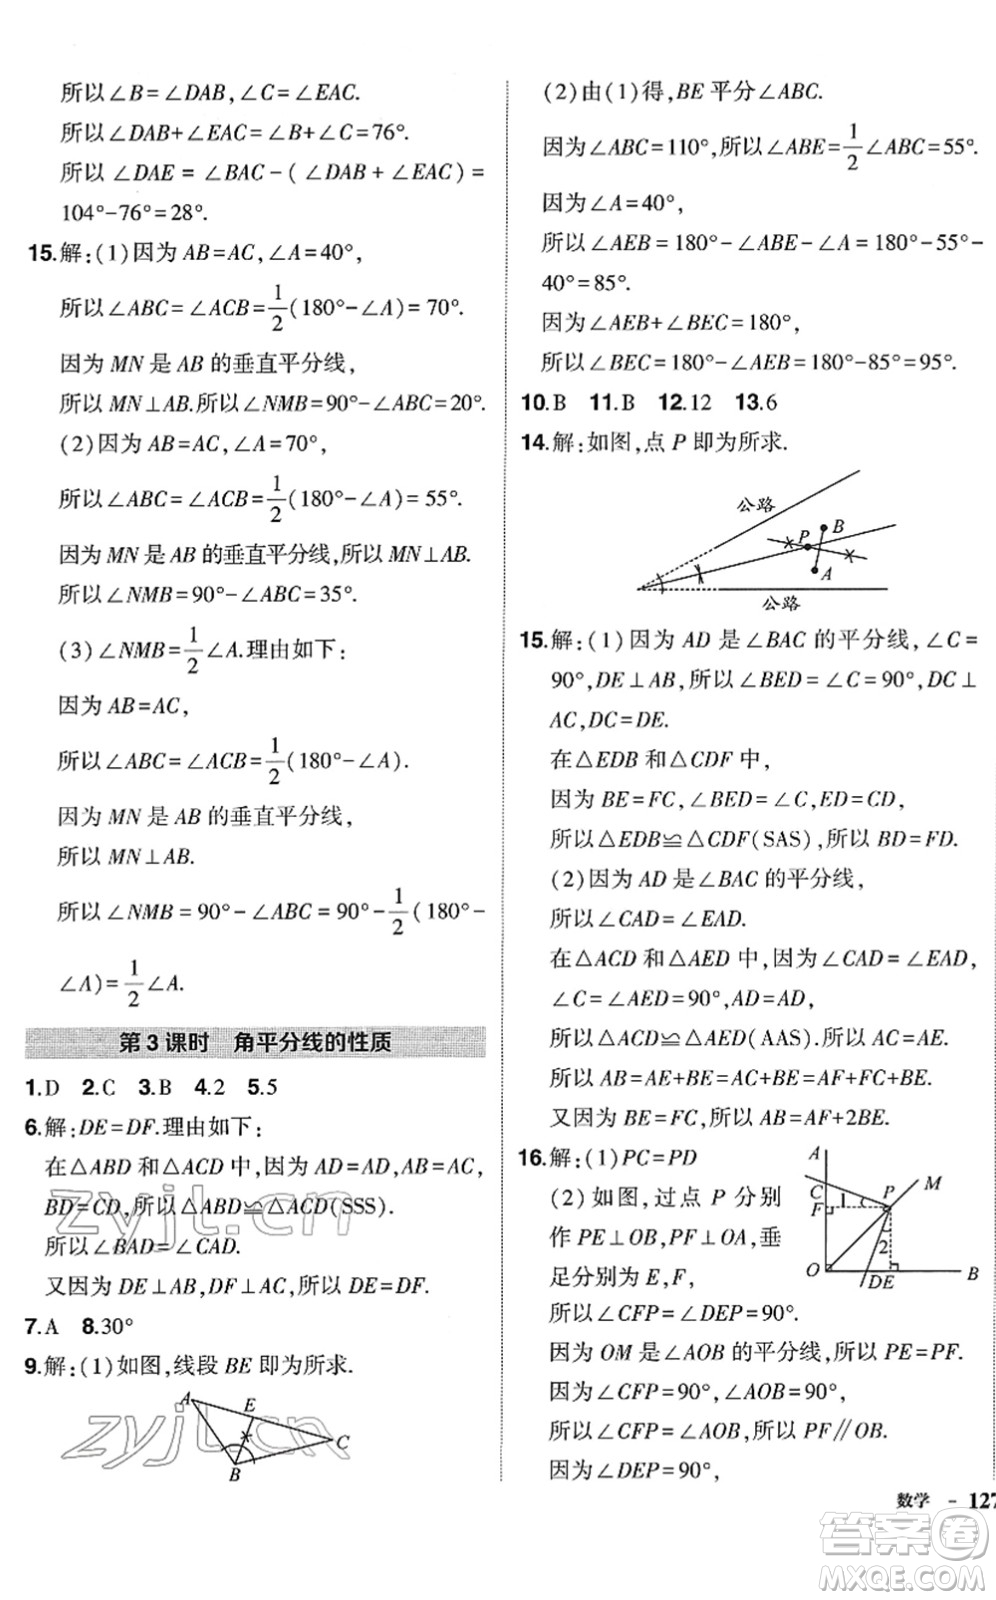 所以∠B=∠DAB,∠C=∠EAC.
所以∠DAB+∠EAC=∠B+∠C=76°.
所以∠DAE=∠BAC-(∠DAB+∠EAC)=
104°-76°=28°.
15.解:(1)因为AB=AC,∠A=40°,
所以∠ABC=∠ACB=1/2(180°-∠A)=70°.
因为MN是AB的垂直平分线,
所以MN⊥AB.所以∠NMB=90°-∠ABC=20°.
(2)因为AB=AC,∠A=70°,
所以∠ABC=∠ACB=1/2(180°-∠A)=55°.
因为MN是AB的垂直平分线,所以MN⊥AB.
所以∠NMB=90°-∠ABC=35°.
(3)∠NMB=1/2∠A.理由如下:
因为AB=AC,
所以∠ABC=∠ACB=1/2(180°-∠A).
因为MN是AB的垂直平分线,
所以MN⊥AB.
所以∠NMB=90°-∠ABC=90°-1/2(180°-
∠A)=1/2∠A.
第3课时 角平分线的性质
1.D 2.C 3.B 4.2 5.5
6.解:DE=DF.理由如下:
在△ABD和△ACD中,因为AD=AD,AB=AC,
BD=CD,所以△ABD≌△ACD(SSS).
所以∠BAD=∠CAD.
又因为DE⊥AB,DF⊥AC,所以DE=DF.
7.A 8.30°
9.解:(1)如图,线段BE即为所求.
A
E
C
B
zyjl.cn
zyjl.cn
(2)由(1)得,BE平分∠ABC.
因为∠ABC=110°,所以∠ABE=1/2∠ABC=55°.
因为∠A=40°,
所以∠AEB=180°-∠ABE-∠A=180°-55°-
40°=85°.
因为∠AEB+∠BEC=180°,
所以∠BEC=180°-∠AEB=180°-85°=95°.
10.B 11.B 12.12 13.6
14.解:如图,点P即为所求.
公路
B
P
A
公路
15.解:(1)因为AD是∠BAC的平分线,∠C=
90°,DE⊥AB,所以∠BED=∠C=90°,DC⊥
AC,DC=DE.
在△EDB和△CDF中,
因为BE=FC,∠BED=∠C,ED=CD,
所以△EDB≌△CDF(SAS),所以BD=FD.
(2)因为AD是∠BAC的平分线,
所以∠CAD=∠EAD.
在△ACD和△AED中,因为∠CAD=∠EAD,
∠C=∠AED=90°,AD=AD,
所以△ACD≌△AED(AAS),所以AC=AE,
所以AB=AE+BE=AC+BE=AF+FC+BE.
又因为BE=FC,所以AB=AF+2BE.
16.解:(1)PC=PD
(2)如图,过点P分别
作PE⊥OB,PF⊥OA,垂
足分别为E,F,
A
M
C
1
P
F
2
O
DE
B
所以∠CFP=∠DEP=90°.
因为OM是∠AOB的平分线,所以PE=PF.
因为∠CFP=90°,∠AOB=90°,
所以∠CFP=∠AOB,所以PF∥OB.
因为∠DEP=90°,
数学 - 127
答案圈
MXQE.COM